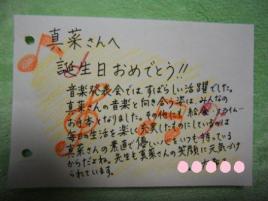 真菜さんへ
誕生日おめでとう!!
音楽発表会では、すばらしい活躍でした。
真菜さんの音楽と向き合う姿は、みんなの
お手本となりました。その他にも絵画、
毎日の生活を楽しく充実したものにしているのは
真菜さんの素直で優しい心をいつも持っている
からだよね。先生も真菜さんの笑顔に元気づけ
られています。